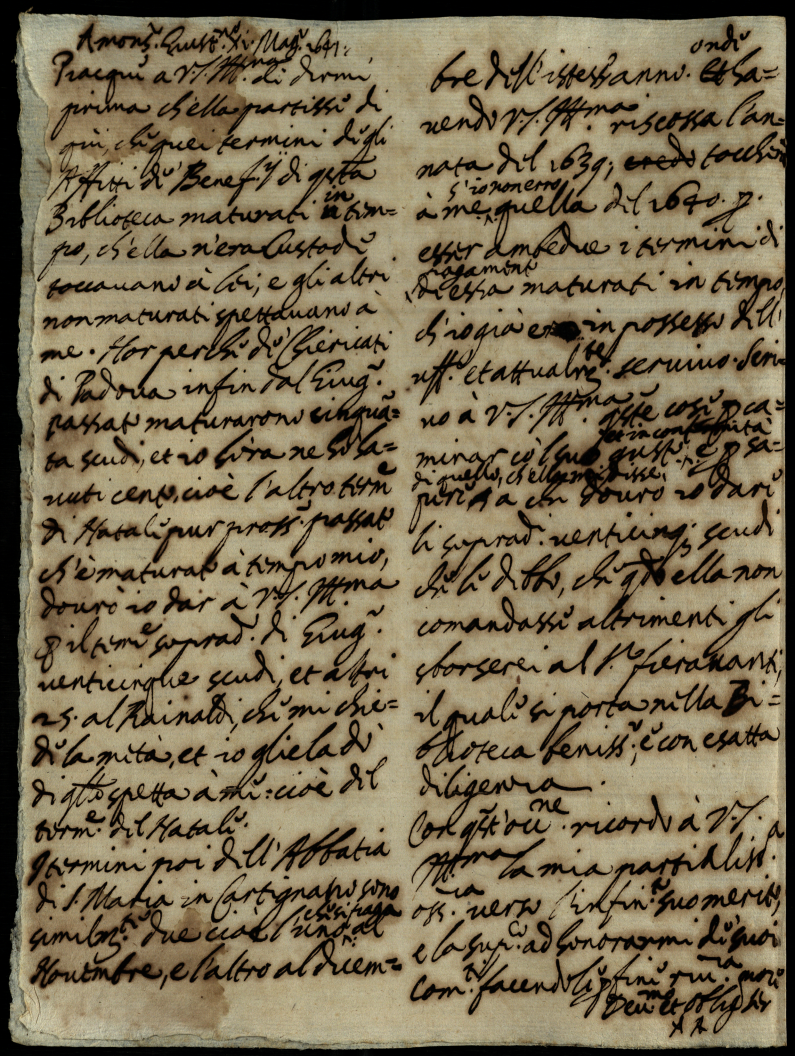 A mons.r Giust.ni Xi. Mag.o 1641:
Piacque a V.S. Ill.ma di dirmi
prima ch'ella partisse di
qui, che quei termini degli
Affitti de' Benefitij di q.sta
Biblioteca maturati in tem=
po, ch'ella n'era Custode
toccavano à lei; e gli altri
non maturati spettavano à
me. Hor perche de' Chiericati
di Padova infin dal Giug.o
passato maturarono cinquã=
ta scudi, et io hora ne hò ha=
vuti cento, cioè l'altro term.e
di Natale pur pross.o passato
ch'è maturato à tempo mio,
dovrò io dar à V.S. Ill.ma
p il term.e soprad.o di Giug.o
venticinque scudi, et altri
25. al Rainaldi, che mi chie=
de la metà, et io gliela dò
di q.llo spetta à me: cioè del
term.e del Natale.
I termini poi dell'Abbatia
di S. Maria in Cartignano sono
similm.te due cioè l'uno al
che si paga
Novembre, e l'altro al dicem=
bre dell'istess'anno. onde ha=
vendo V.S. Ill.ma riscossa l'an=
nata del 1639; credo tocchi
s'io non erro
à me quella del 1640. p
esser ambedue i termini di
pagamento
di essa maturati in tempo,
ch'io già ero in possesso dell'
uff.o et attualm.te servivo. Scri=
vo à V.S. Ill.ma q.ste cose p ca=
et in conformità
minar cò'l suo gusto, e p sa=
di quello, ch'ella mi disse,
pere a chi dovrò io dare
li soprad.i venticinq; scudi
che le debbo, che q.do ella non
comandasse altrimenti gli
sborserei al S.r Fieravanti,
il quale si porta nella Bi=
blioteca beniss.o, e con esatta
diligenza.
Con q.st'occ.ne ricordo à V.S.
Ill.ma la mia partialiss.a
oss.za verso l'infin.to suo merito,
e la sup.co ad honorarmi de' suoi
com.di facendole p fine riv.za
Dev.mo et oblig. ser